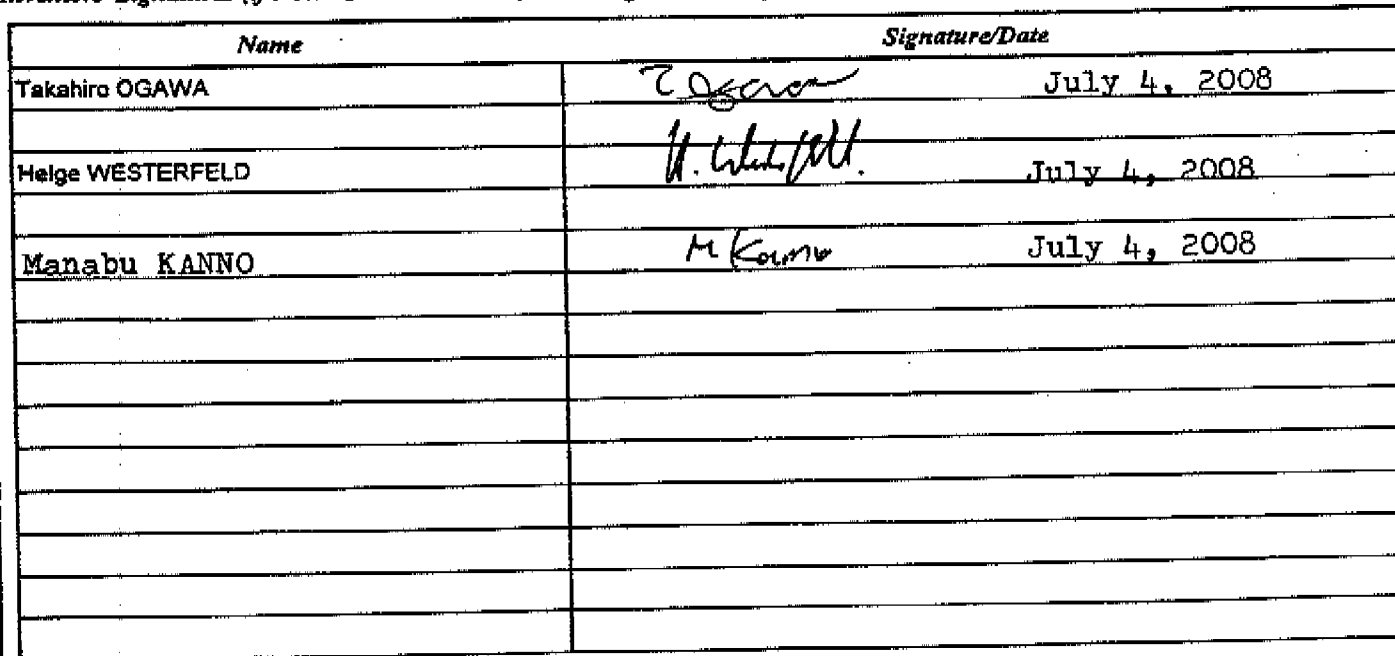 Name Signature/Date
Takahiro OGAWA T Ogawa July 4, 2008
Helge WESTERFELD H. Westerfeld. July 4, 2008
Manabu KANNO M Kanno July 4, 2008